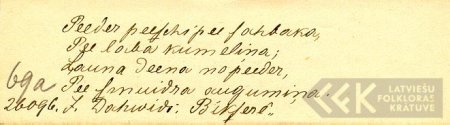 Peeder peeschi pee sahbaka,
Pee laba kumelina;
Launa deena nopeeder,
Pee smuidra augumina.
69a
26096. J. Dahwids. Bikseŗe.
LATVIEŠU
FOLKLORAS
KRĀTUVE